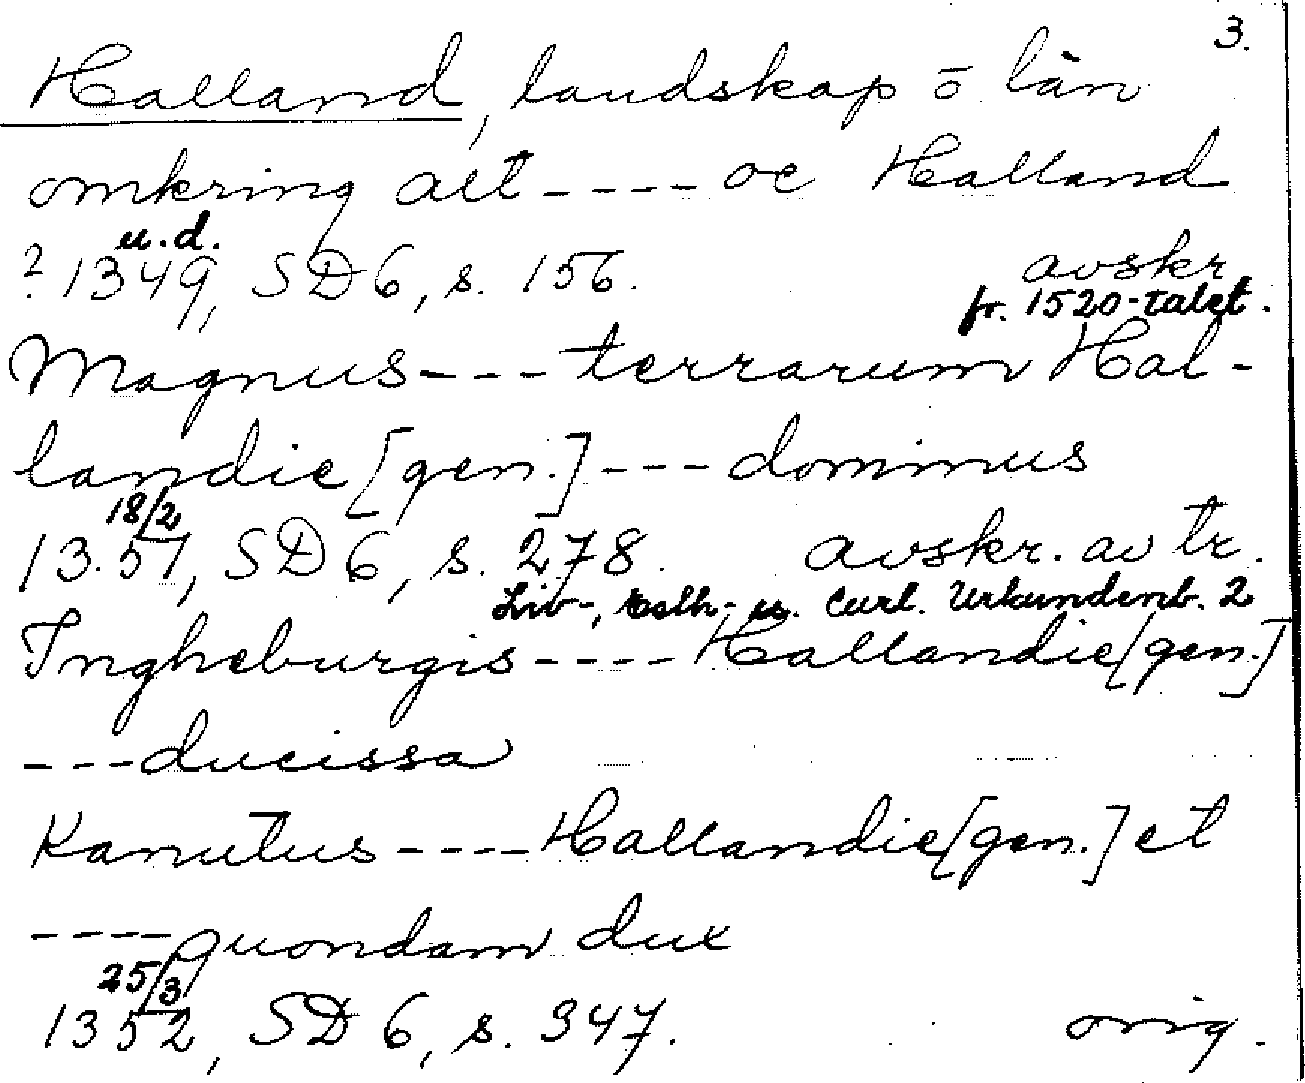 3.
Halland, landskap o län
omkring alt ---- oc Halland
u.d.
? 1349, SD 6, s. 156. avskr.
fr. 1520-talet.
Magnus --- terrarum Hal-
landie [gen.] --- dominus
18/2
1351, SD 6, s. 278. avskr. av tr.
Liv-, Esth-, u. Curl. Urkundenb. 2
Ingheburgis ---- Hallandie [gen.]
--- ducissa
Kanutus ---- Hallandie [gen.] et
---- quondam dux
25/3
1352, SD 6, s. 347. orig.